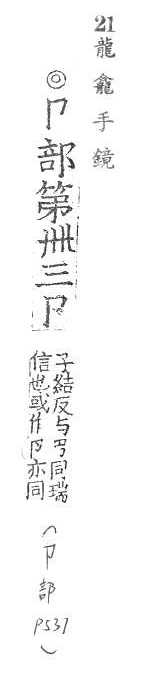 21龍龕手鏡
◎卩部第卅三卩
子結反与㔾同瑞
信也或作卪亦同
（卩部 P537）